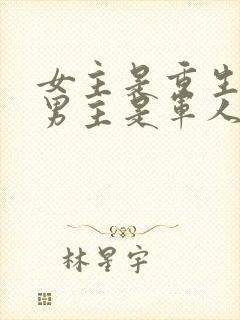 女主是重生
男主是军人
林星宇